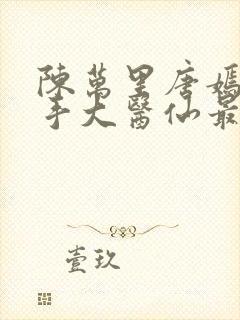 陳萬里唐嫣
手大醫仙最
壹玖